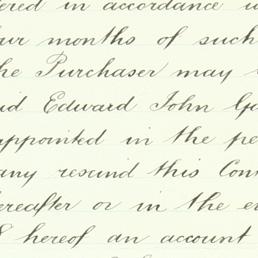 ered in accordance
our months of such
he Purchaser may
aid Edward John
appointed in the pe
any rescind this Con
ereafter or in the e
8 hereof an account